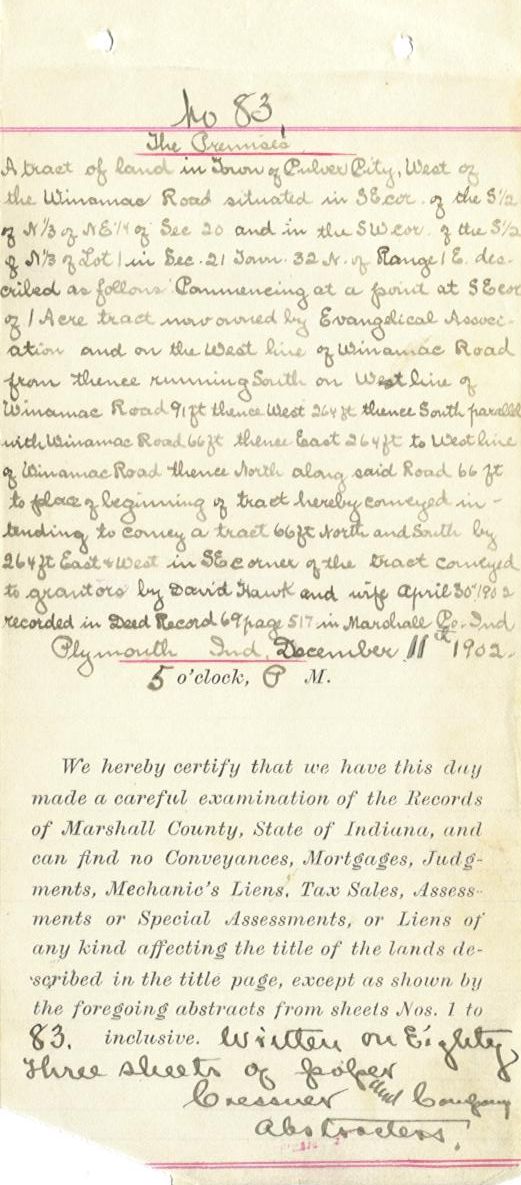 No 83.
The Premises
A tract of land in Town of Culver City, West of
the Winamac Road situated in SE cor. of the S 1/2
of N 1/3 of NE 1/4 of Sec 20 and in the SW cor. of the S 1/2
of N 1/3 of Lot 1 in Sec. 21 Town. 32 N. of Range 1 E. des-
cribed as follows Commencing at a point at SE cor
of 1 Acre tract now owned by Evangelical Associ-
ation and on the West line of Winamac Road
from thence running South on West line of
Winamac Road 91 ft thence West 264 ft thence South parallel
with Winamac Road 66 ft thence East 264 ft to West line
of Winamac Road thence North along said Road 66 ft
to place of beginning of tract hereby conveyed in-
tending to convey a tract 66 ft North and South by
264 ft East & West in SE corner of the tract conveyed
to grantors by David Hawk and wife April 30" 1902
recorded in Deed Record 69 page 517 in Marshall Co. Ind
Plymouth Ind, December 11th 1902.
5 o'clock, P M.
We hereby certify that we have this day
made a careful examination of the Records
of Marshall County, State of Indiana, and
can find no Conveyances, Mortgages, Judg-
ments, Mechanic's Liens, Tax Sales, Assess-
ments or Special Assessments, or Liens of
any kind affecting the title of the lands de-
scribed in the title page, except as shown by
the foregoing abstracts from sheets Nos. 1 to
83. inclusive. Written on Eighty
three sheets of paper
Cressner and Company
Abstracters.